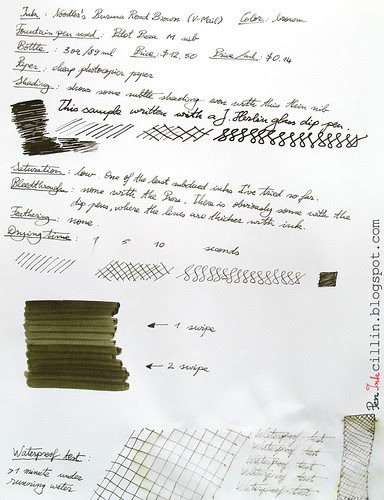 Ink: Noodler's Burma Road Brown (V-Mail) Color: brown
Fountain pen used: Pilot Prera M nib
Bottle: 3 oz/89 ml Price: $12.50 Price/mL: $0.14
Paper: cheap photocopier paper
Shading: shows some subtle shading even with this thin nib
This sample written with a J. Herbin glass dip pen.
Saturation: low. One of the least subdued inks I've tried so far.
Bleedthrough: none with the Prera. There is obviously some with the
dip pens, where the lines are thicker with ink.
Feathering: none
Drying time: 1 5 10 seconds
1 swipe
2 swipe
Waterproof test:
>1 minute under
running water
Waterproof test
Waterproof test
Waterproof test
Waterproof test
Waterproof test
PenInkcillin.blogspot.com